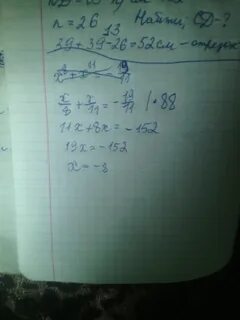 n = 26 Найти CD-?
13
39 + 39 - 26 = 52 см - отрезок
x/8 + x/11 = -19/11 | • 88
11x + 8x = -152
19x = -152
x = -8